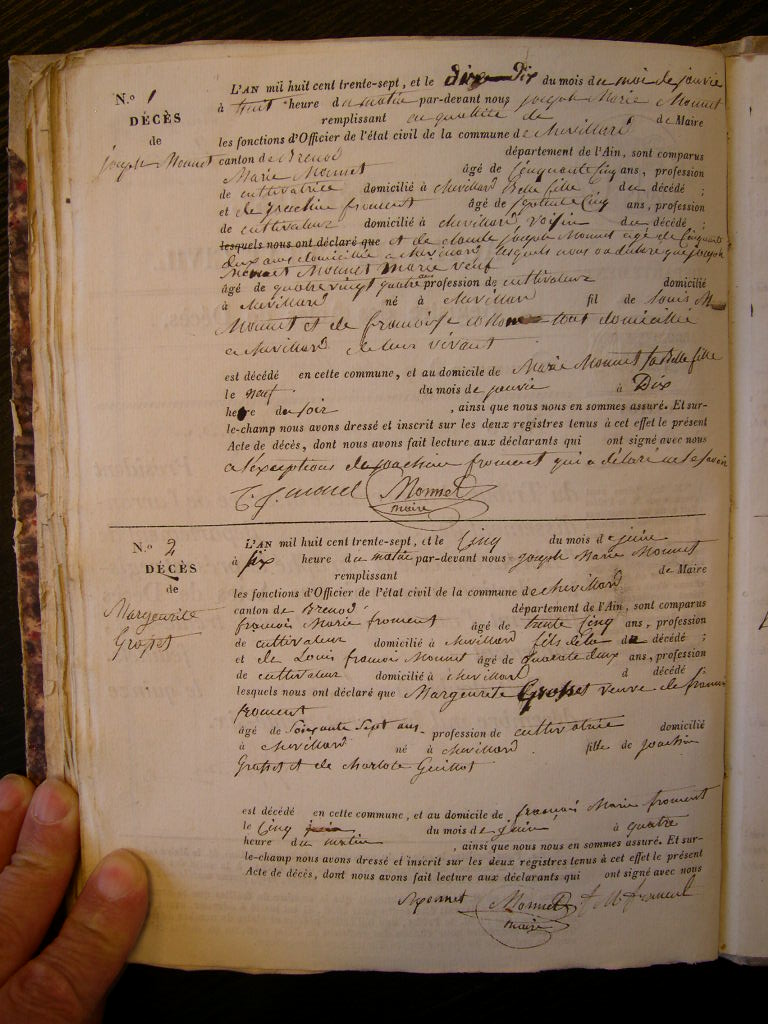 N.o 1
DÉCÈS
de
joseph Monnet
L'AN mil huit cent trente-sept, et le Dix du mois du moi de janvie
à huit heure du matin par-devant nous joseph Marie Monnet
remplissant en qualité de de Maire
les fonctions d'Officier de l'état civil de la commune de chevillard
canton de Brenod département de l'Ain, sont comparus
Marie Monnet âgé de Cinquante Cinq ans, profession
de cultivatrice domicilié à chevillard Belle fille du décédé ;
et de joachin froment âgé de septente Cinq ans, profession
de cultivateur domicilié à chevillard voisin du décédé ;
lesquels nous ont déclaré que et de claude joseph Monnet agé de Cinquante
deux ans domicillie a chevillard lesquels nous on déclaré que joseph
Monnet Monnet marie veuf
âgé de quatre vingt quatre ans profession de cultivateur domicilié
à chevillard né à chevillard fil de Louis M
Monnet et de francoise tout domicillié
a chevillard de leur vivant
est décédé en cette commune, et au domicile de Marie Monnet sa Belle fille
le neuf du mois de janvie à Dix
heure du soir , ainsi que nous nous en sommes assuré. Et sur-
le-champ nous avons dressé et inscrit sur les deux registres tenus à cet effet le présent
Acte de décès, dont nous avons fait lecture aux déclarants qui ont signé avec nous
a l'exceptions de joachin froment qui a délaré ne le savoir
Monnet
maire
N.o 2
DÉCÈS
de
Marguerite
Grosset
L'AN mil huit cent trente-sept, et le Cinq du mois de juin
à six heure du matin par-devant nous joseph Marie Monnet
remplissant de Maire
les fonctions d'Officier de l'état civil de la commune de chevillard
canton de Brenod département de l'Ain, sont comparus
francois Marie froment âgé de trente Cinq ans, profession
de cultivateur domicilié à chevillard fils de la décédé ;
et de Louis francois Monnet âgé de quarante deux ans, profession
de cultivateur domicilié à chevillard d décédé ;
lesquels nous ont déclaré que Marguerite Grosset veuve de francois
froment
âgé de Soixante Sept ans profession de cultivatrice domicilié
à chevillard né à chevillard fille de joachin
Grosset et de Charlote Guillot
est décédé en cette commune, et au domicile de francois Marie froment
le Cinq juin du mois de juin à quatre
heure du matin , ainsi que nous nous en sommes assuré. Et sur-
le-champ nous avons dressé et inscrit sur les deux registres tenus à cet effet le présent
Acte de décès, dont nous avons fait lecture aux déclarants qui ont signé avec nous
Monnet f M froment
maire